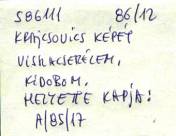 586111 86/12
KRAJCSOVICS KÉPÉT
VISHACSERÉLEM,
KIDOBOM,
HELYETTE KAPJA:
A/85/17